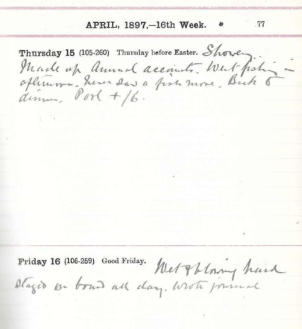 APRIL, 1897.—16th Week. 77
Thursday 15 (105-260) Thursday before Easter. Showery.
Made up Annual accounts. Went fishing in
afternoon. Never saw a fish move. Back to
dinner. Pool + /6.
Friday 16 (106-259) Good Friday. Wet & blowing hard
Stayed on board all day. Wrote journal